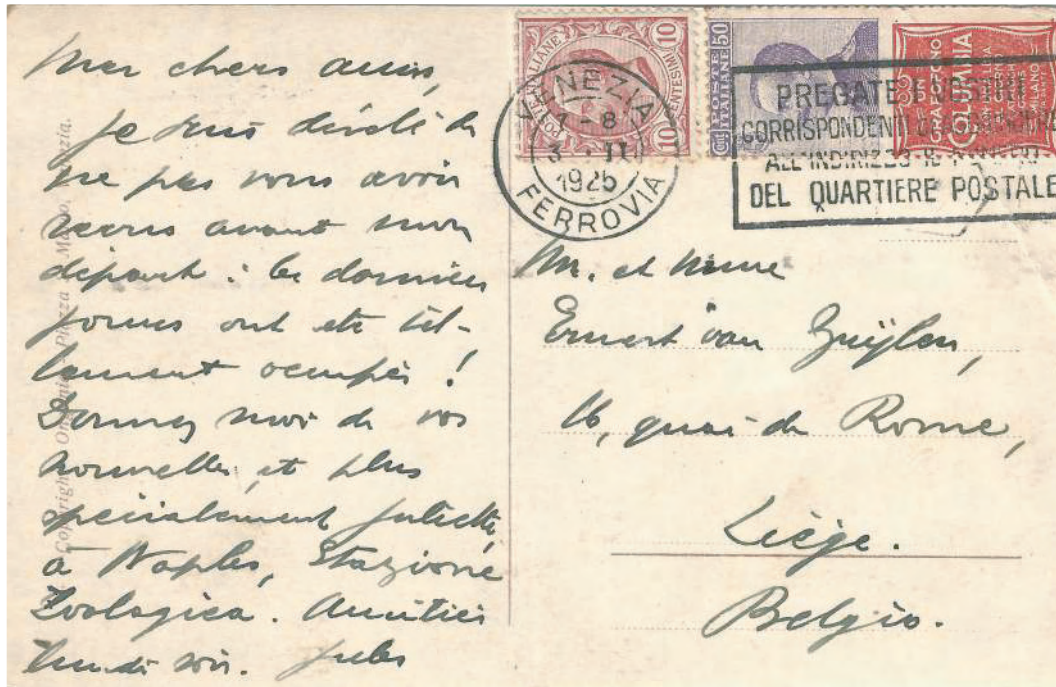 Mes chers amis,
je suis désolé de
ne pas vous avoir
revus avant mon
départ : les derniers
jours ont été tel-
lement occupés !
Donnez moi de vos
nouvelles, et plus
spécialement Juliette,
à Naples, Stazione
Zoologica. Amitiés
Lundi soir. Jules
Copyright Piazza S. Marco, Venezia.
POSTE ITALIANE
10 CENTESIMI 10
VENEZIA
FERROVIA
1925
POSTE ITALIANE
Cent. 50
GRAFOFONO
COLUMBIA
MILANO
PREGATE I VOSTRI
CORRISPONDENTI
ALL'INDIRIZZO IL NUMERO
DEL QUARTIERE POSTALE
Mr. et Mme
Ernest van Zuylen,
16, quai de Rome,
Liège.
Belgio.